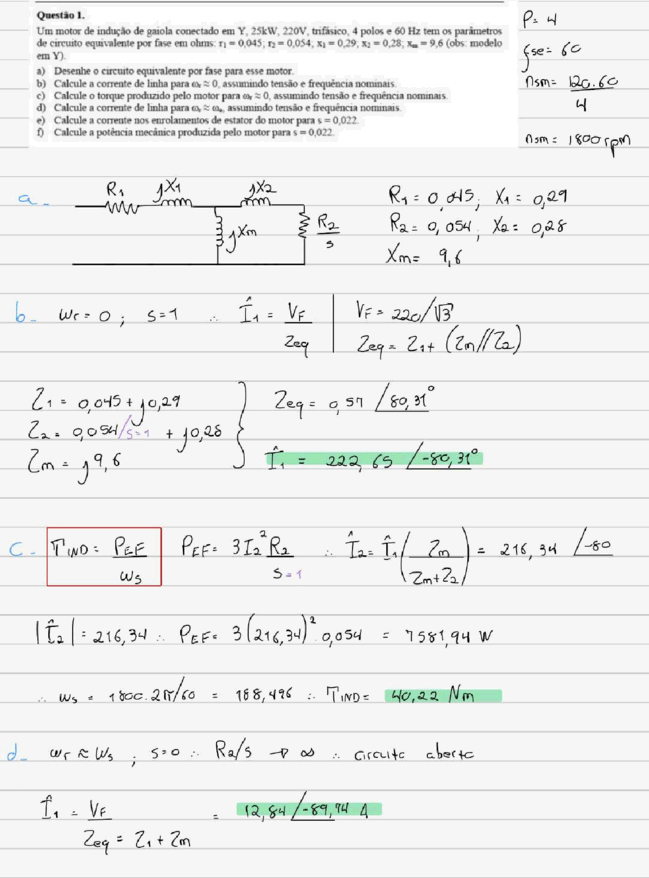 Questão 1.
Um motor de indução de gaiola conectado em Y, 25kW, 220V, trifásico, 4 polos e 60 Hz tem os parâmetros
de circuito equivalente por fase em ohms: r₁ = 0,045; r₂ = 0,054, x₁ = 0,29, x₂ = 0,28; xₘ = 9,6 (obs: modelo
em Y).
a) Desenhe o circuito equivalente por fase para esse motor.
b) Calcule a corrente de linha para ωᵣ ≈ 0, assumindo tensão e frequência nominais.
c) Calcule o torque produzido pelo motor para ωᵣ ≈ 0, assumindo tensão e frequência nominais.
d) Calcule a corrente de linha para ωᵣ ≈ ωₛ, assumindo tensão e frequência nominais.
e) Calcule a corrente nos enrolamentos de estator do motor para s = 0,022.
f) Calcule a potência mecânica produzida pelo motor para s = 0,022.
P = 4
fse = 60
nsm = 120.60
4
nsm = 1800 rpm
a-
R₁ jX₁ jX₂
jXm R₂/s
R₁ = 0,045; X₁ = 0,29
R₂ = 0,054; X₂ = 0,28
Xm = 9,6
b- wr = 0 ; s=1 ∴ Î₁ = VF/Zeq
VF = 220/√3
Zeq = Z₁ + (Zm//Z₂)
Z₁ = 0,045 + j0,29
Z₂ = 0,054/s=1 + j0,28
Zm = j9,6
Zeq = 0,57 /80,31°
Î₁ = 222,65 /-80,31°
C- TIND = PEF/ws PEF = 3I₂² R₂/s=1 ∴ Î₂ = Î₁(Zm/Zm+Z₂) = 216,34 /-80
|Î₂| = 216,34 ∴ PEF = 3(216,34)² 0,054 = 7581,94 W
∴ ws = 1800.2π/60 = 188,496 ∴ TIND = 40,22 Nm
d- wr ≈ ws ; s=0 ∴ R₂/s → ∞ ∴ circuito aberto
Î₁ = VF = 12,84 /-89,74 A
Zeq = Z₁ + Zm